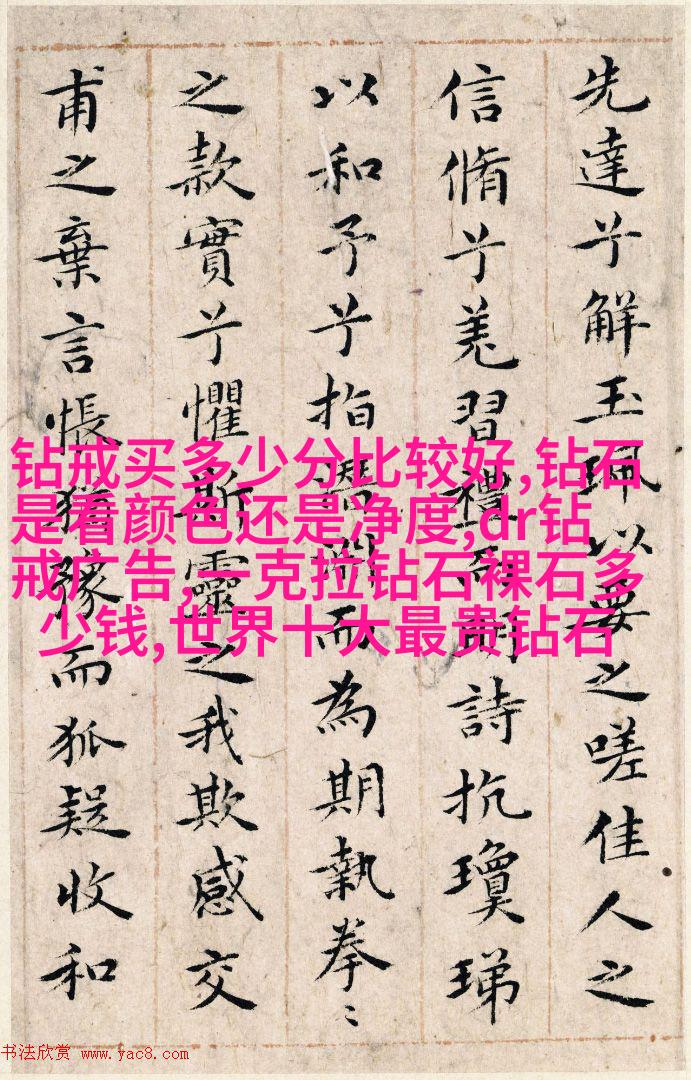 先達兮解玉珮以要之嗟佳人之
信脩兮羌習禮而明詩抗瓊珶
以和予兮指潛淵而為期執拳〻
之款實兮懼斯靈之我欺感交
甫之棄言悵猶豫而狐疑收和
钻戒买多少分比较好,钻石
是看颜色还是净度,dr钻
戒广告,一克拉钻石裸石多
少钱,世界十大最贵钻石
书法欣赏 www.yac8.com